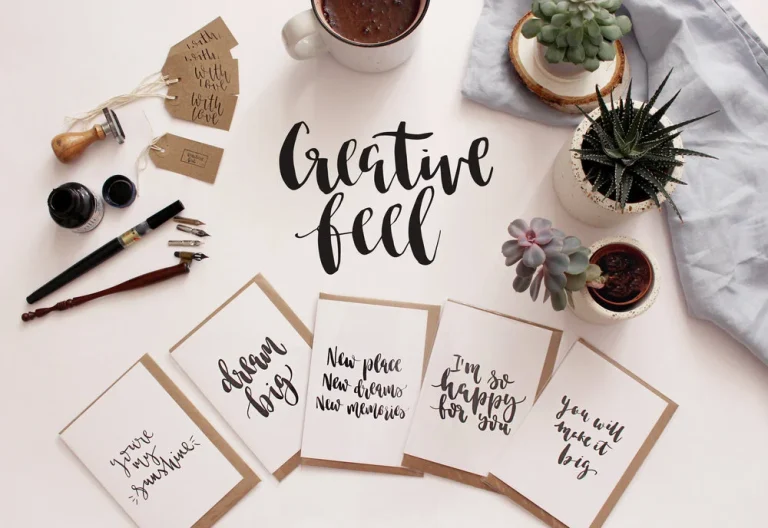 with
with
with
love
with
love
Creative
feel
you're
my
sunshine
dream
big
New place
New dreams
New memories
I'm so
happy
for you
you will
make it
big